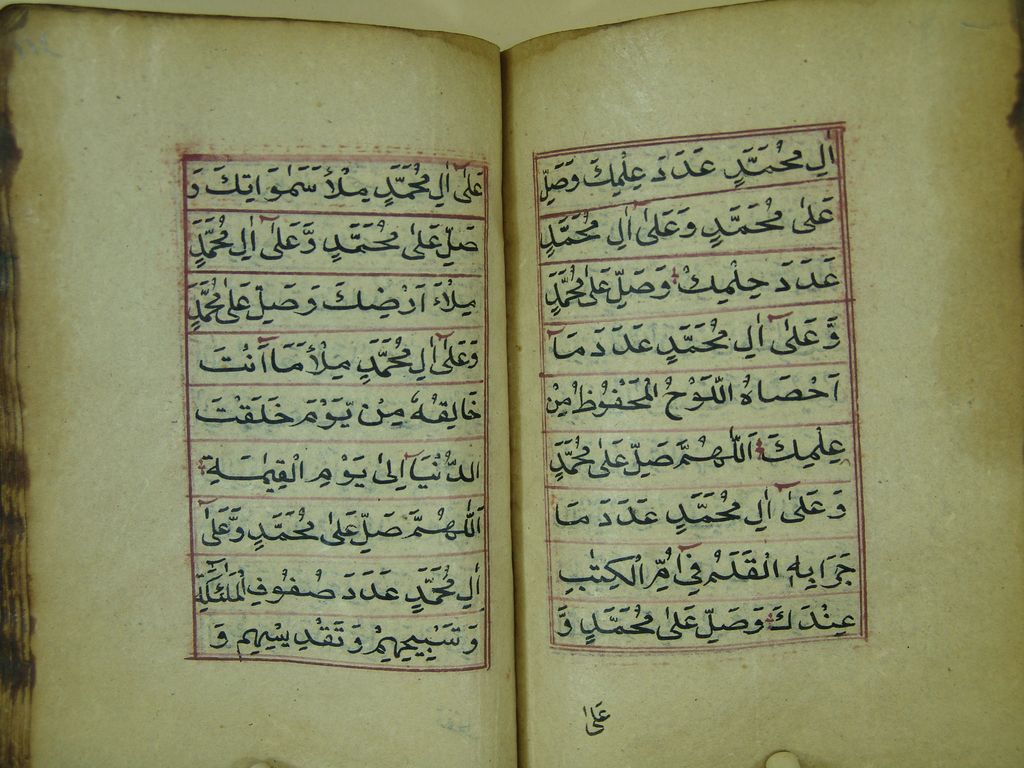 اٰلِ مُحَمَّدٍ عَدَدَ عِلْمِكَ وَصَلِّ
عَلٰى مُحَمَّدٍ وَعَلٰى اٰلِ مُحَمَّدٍ
عَدَدَ حِلْمِكَ وَصَلِّ عَلٰى مُحَمَّدٍ
وَّعَلٰٓى اٰلِ مُحَمَّدٍ عَدَدَ مَآ
اَحْصَاهُ اللَّوْحُ الْمَحْفُوْظُ مِنْ
عِلْمِكَ اَللّٰهُمَّ صَلِّ عَلٰى مُحَمَّدٍ
وَعَلٰٓى اٰلِ مُحَمَّدٍ عَدَدَ مَا
جَرَا بِهِ الْقَلَمُ فِىْٓ اُمِّ الْكِتٰبِ
عِنْدَكَ وَصَلِّ عَلٰى مُحَمَّدٍ وَّ
عَلٰى
عَلٰٓى اٰلِ مُحَمَّدٍ مِلْأَ سَمٰوَاتِكَ وَ
صَلِّ عَلٰى مُحَمَّدٍ وَّعَلٰٓى اٰلِ مُحَمَّدٍ
مِلْاَءَ اَرْضِكَ وَصَلِّ عَلٰى مُحَمَّدٍ
وَعَلٰٓى اٰلِ مُحَمَّدٍ مِلْأَ مَآ اَنْتَ
خَالِقُهٗ مِنْ يَّوْمَ خَلَقْتَ
الدُّنْيَآ اِلٰى يَوْمِ الْقِيٰمَةِ
اَللّٰهُمَّ صَلِّ عَلٰى مُحَمَّدٍ وَّعَلٰٓى
اٰلِ مُحَمَّدٍ عَدَدَ صُفُوْفِ الْمَلٰٓئِكَةِ
وَتَسْبِيْحِهِمْ وَتَقْدِيْسِهِمْ وَ